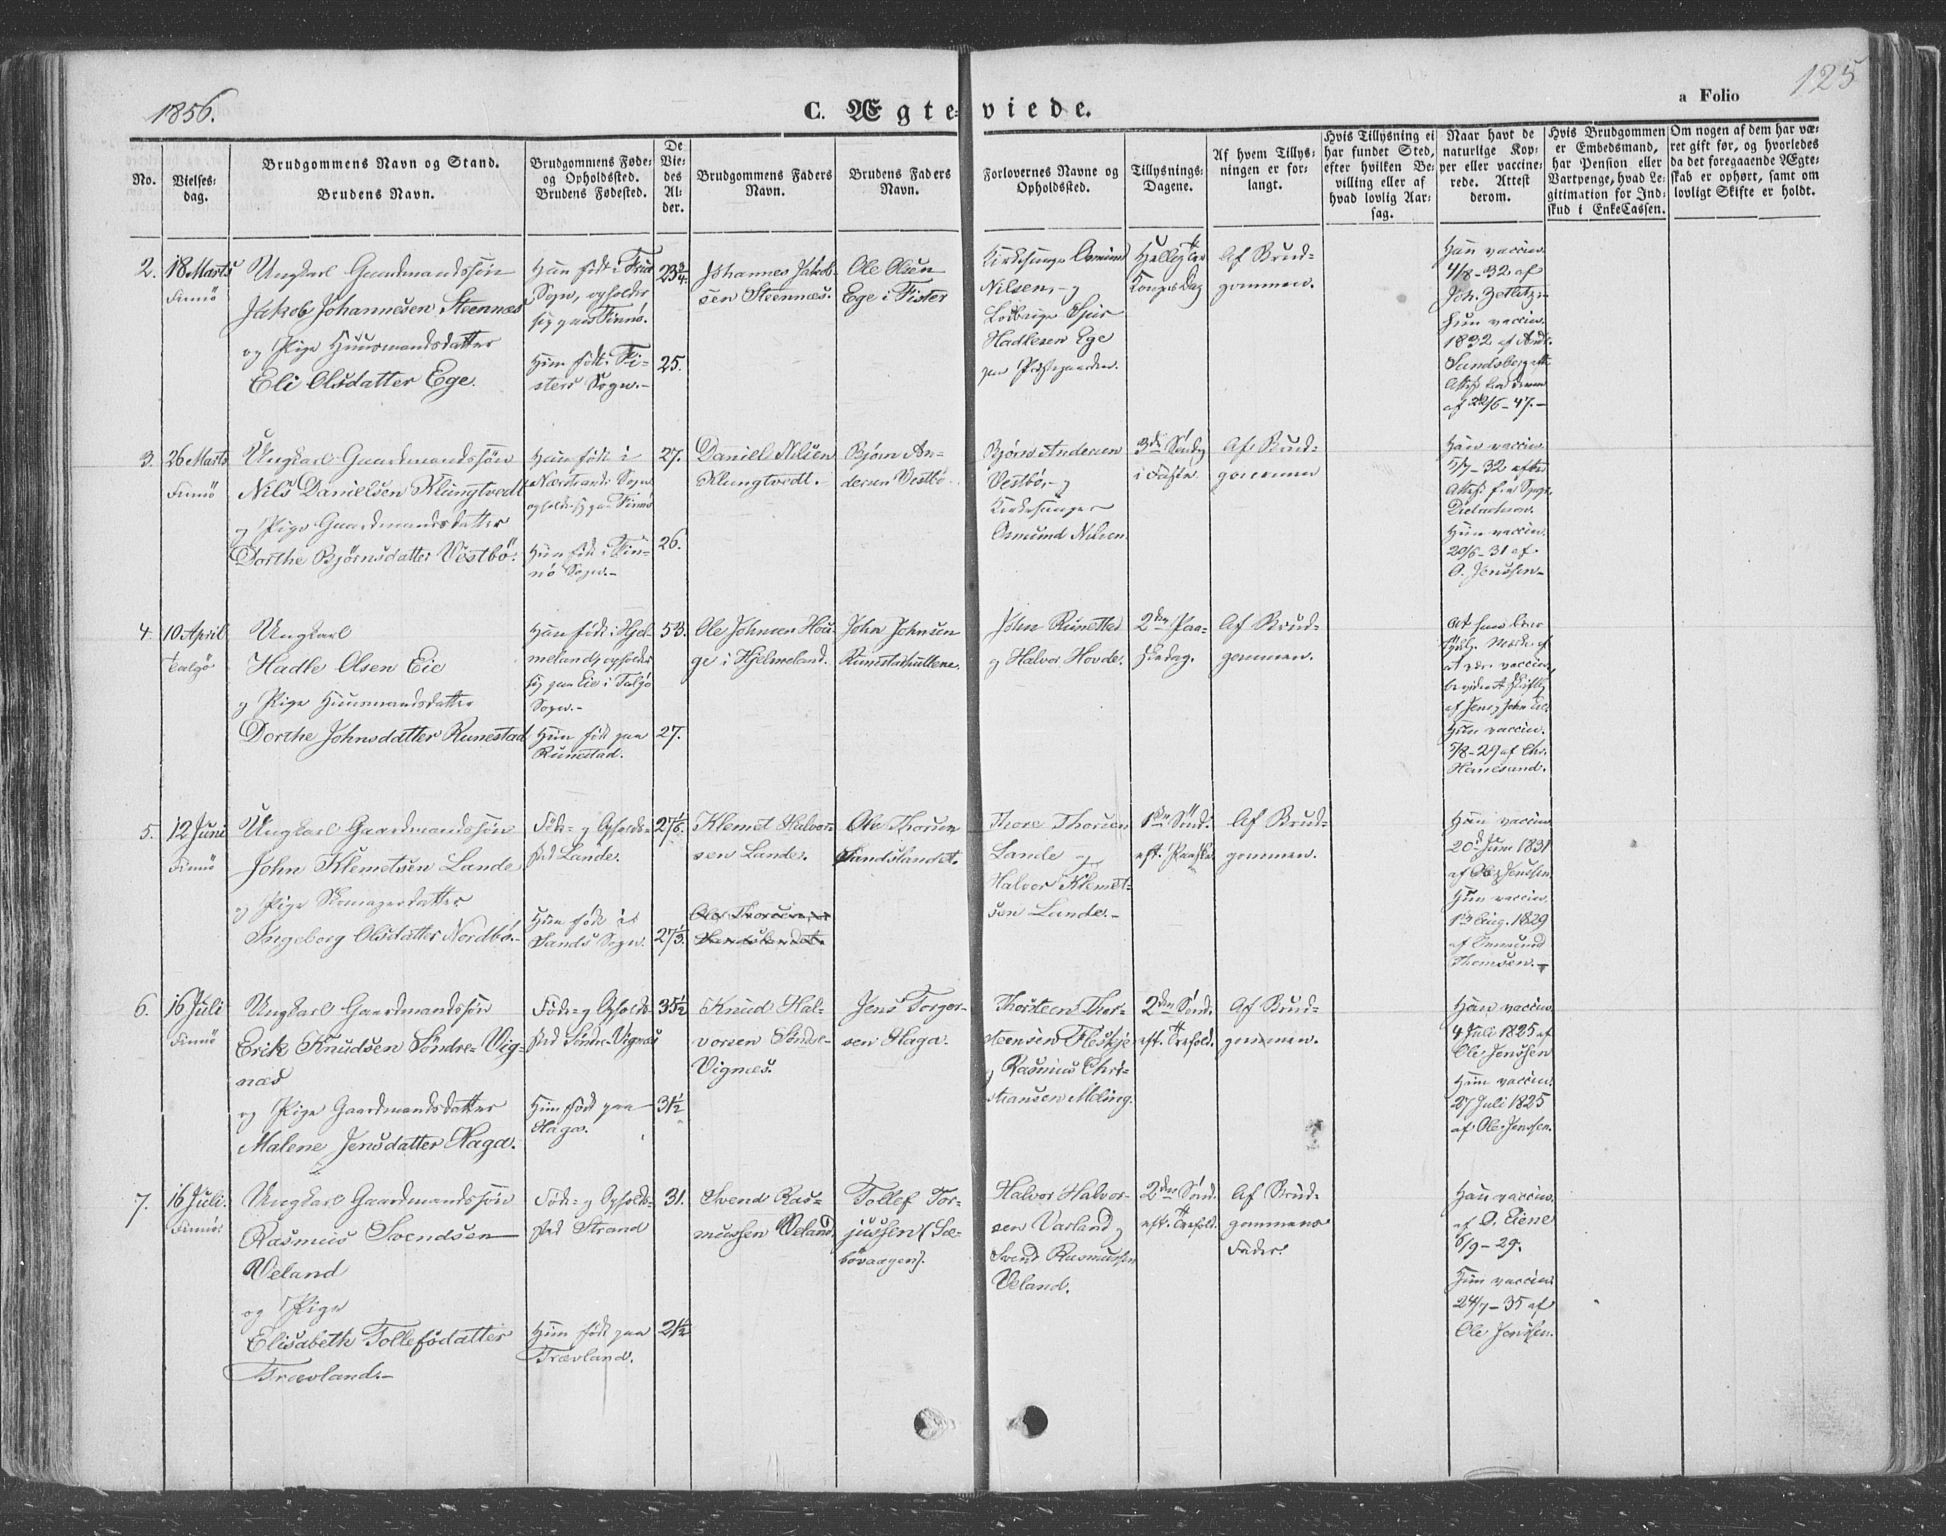 1856.
C. Ægteviede.
a Folio
125
No.
Vielses-
dag.
Brudgommens Navn og Stand.
Brudens Navn.
Brudgommens Føde-
og Opholdssted.
Brudens Fødested.
De
Vie-
des
Al-
der.
Brudgommens Faders
Navn.
Brudens Faders
Navn.
Forlovernes Navne og
Opholdssted.
Tillysnings-
Dagene.
Af hvem Tillys-
ningen er for-
langt.
Hvis Tillysning ei
har fundet Sted,
efter hvilken Be-
villing eller af
hvad lovlig Aar-
sag.
Naar havt de
naturlige Kop-
per eller vaccine-
rede. Attest
derom.
Hvis Brudgommen
er Embedsmand,
har Pension eller
Vartpenge, hvad Le-
gitimation for Ind-
skud i EnkeCassen.
Om nogen af dem har væ-
ret gift før, og hvorledes
da det foregaaende Ægte-
skab er ophørt, samt om
lovligt Skifte er holdt.
2.
18 Marts
Finnö
Ungkarl Gaardmandssøn
Jakob Johannesen Steennæs
og Pige Huusmandsdatter
Eli Olsdatter Ege.
Han født i
Sogn, opholder
sig paa Finnö.
Hun født i Fi-
sters Sogn.-
23¾
25.
Johannes Jakob-
sen Steennæs.
Ole Olsen
Ege i Fister
Kirkesanger Osmund
Nilsen, og
Sjur
Hadlesen Ege
paa Præstegaarden.
Helligtre
Kongers Dag
Af Brud-
gommen.
Han vaccin.
4/8-32 af
Joh. Zetlitz.
Hun vaccin.
1832 af
Sundsberg
Attest
af 22/6-47.-
3.
26 Marts
Finnö
Ungkarl Gaardmandssøn
Nils Danielsen Klungtvedt
og Pige Gaardmandsdatter
Dorthe Bjørnsdatter Vestbö.
Han født i
Nærstrands Sogn
opholder sig paa Finnö
Hun født i Fin-
nö Sogn.-
27.
26.
Daniel Nilsen
Klungtvedt.
Bjørn An-
dersen Vestbö.
Bjørn Andersen
Vestbö, og
Kirkesanger
Osmund Nilsen.
3die Søndag
i Faste.
Af Brud-
gommen
Han vaccin.
5/7-32 efter
Attest fra
Hun vaccin.
20/6-31 af
O. Jenssen-
4.
10 April
Talgö
Ungkarl
Hadle Olsen Eie
og Pige Huusmandsdatter
Dorthe Johnsdatter Runestad
Han født i Hjel-
meland, opholder
sig paa Eie i Talgö
Sogn.-
Hun født paa
Runestad.
53.
27.
Ole Johnsen Hou-
ge i Hjelmeland.
John Johnsen
John Runestad
og Halvor Hovde.
2den Paa-
skedag.
Af Brud-
gommen.
At han bær
Mærke af
at være vaccin.
Hun vaccin.
7/8-29 af Chr.
5.
12 Juni
Finnö
Ungkarl Gaardmandssøn
John Klemetsen Lande
og Pige Skomagerdatter
Ingeborg Olsdatter Nordbö.-
Føde- og Opholds-
sted Lande.
Hun født i
Sands Sogn.
27⅙
27⅓.
Klemet Halvor-
sen Lande.
Ole Thorsen
Sandslandet.
Ole Thorsen
Sandslandet.
Thore Thorsen
Lande og
Halvor Klemet-
sen Lande.-
1ste Sönd.
eft. Paaske.
Af Brud-
gommen.
Han vaccin.
20de Juni 1831
af Ole Jenssen
Hun vaccin.
Aug. 1829
af
Thomsen.-
6.
16 Juli
Finnö
Ungkarl Gaardmandssøn
Erik Knudsen Söndre-Vig-
næs
og Pige Gaardmandsdatter
Malene Jensdatter Haga.
Føde- og Opholds-
sted Söndre-Vignæs
Hun født paa
Haga.
35½
31½
Knud Hal-
vorsen Söndre-
Vignæs.
Jens Torger-
sen Haga.
Thorsteen Thor-
steensen Fleskje
og Rasmus Chri-
stiansen Meling.
2den Sönd.
eft. Trefold.
Af Brud-
gommen.
Han vaccin.
4 Juli 1825 af
Ole Jenssen
Hun vaccin.
27 Juli 1825
af Ole Jenssen.
7.
16 Juli.
Finnö.
Ungkarl Gaardmandssøn
Rasmus Svendsen
Veland
og Pige
Elisabeth Tollefsdatter
Trævland.-
Føde- og Opholds-
sted Strand
Hun født paa
Trævland.
31.
21½
Svend Ras-
mussen Veland.
Tollef Tor-
jussen (Sæ-
bövaagen).
Halvor Halvor-
sen Varland og
Svend Rasmussen
Veland.
2den Sönd.
eft. Trefold.
Af Brud-
gommens
Fader.
Han vaccin.
af O. Eiene
6/9-29.
Hun vaccin.
24/7-35 af
Ole Jenssen.